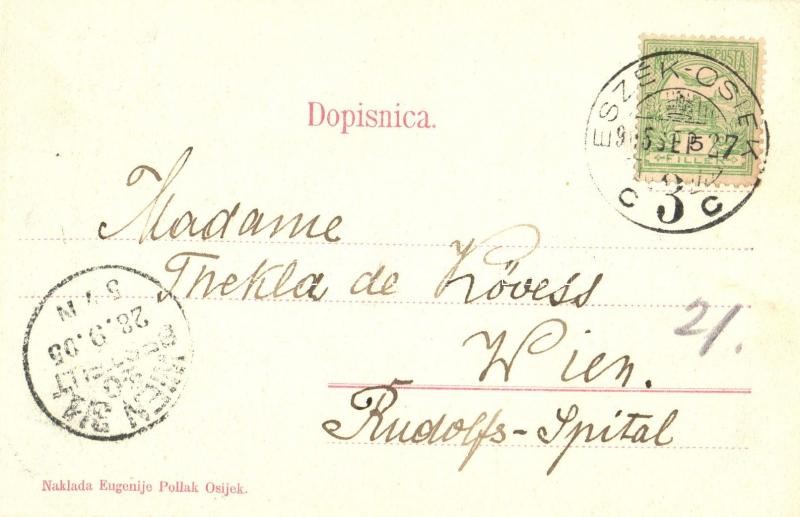 Dopisnica.
ESZÉK-OSIEK
905 SEP 27
5
FILLER
C 3 C
Madame
Thekla de Kövess
Wien.
21.
Rudolfs-Spital
WIEN 3/4
BESTELLT
28.9.05
Naklada Eugenije Pollak Osijek.